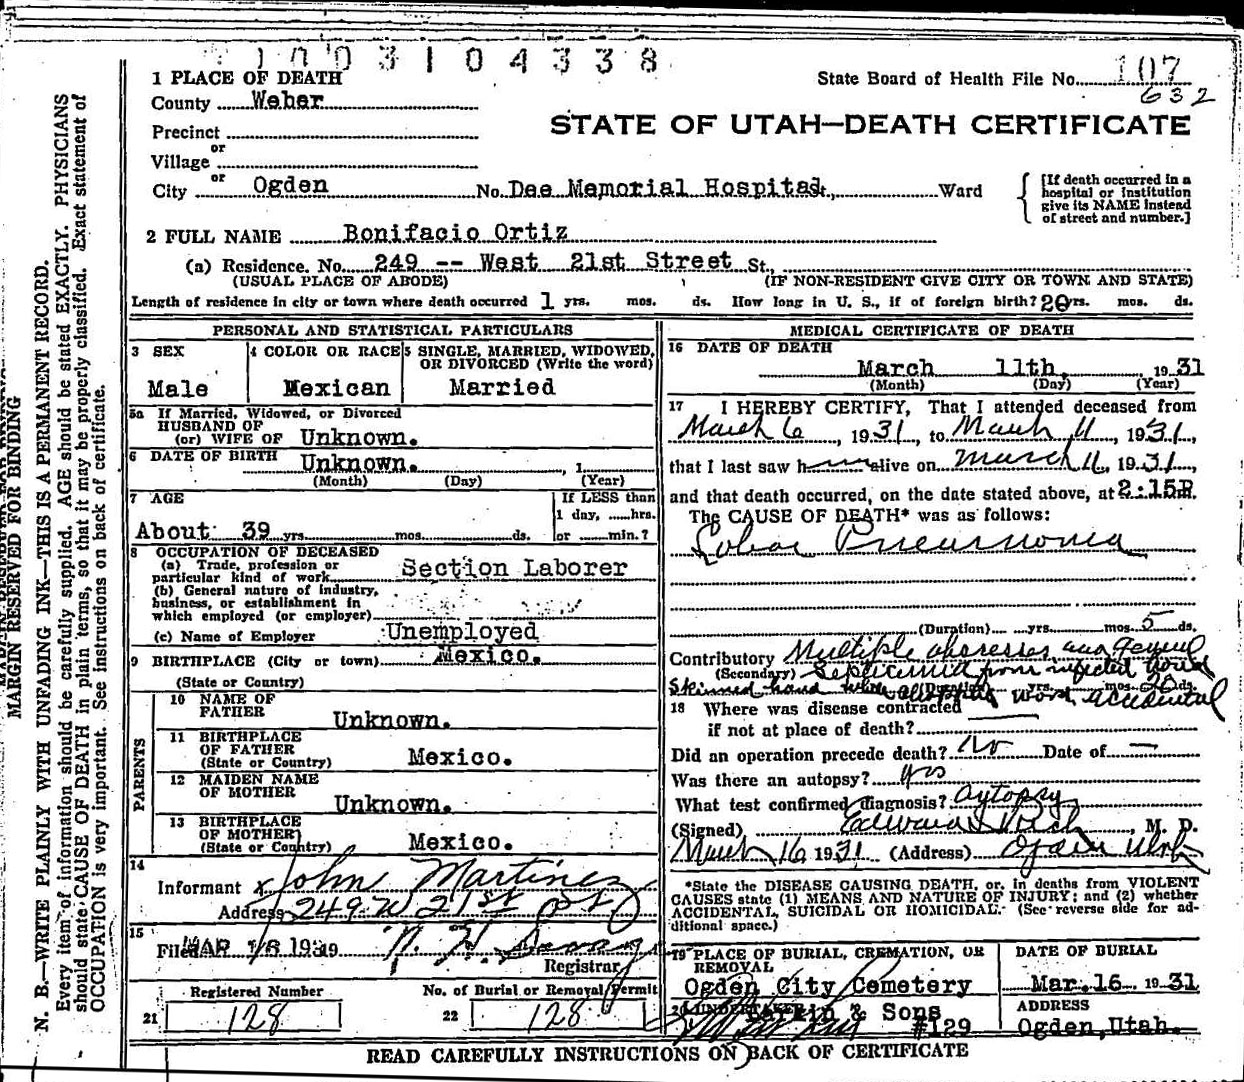 1003104338
1 PLACE OF DEATH
State Board of Health File No. 107
632
County Weber
STATE OF UTAH—DEATH CERTIFICATE
Precinct
or
Village
or
City Ogden No. Dee Memorial Hospital St., Ward
[If death occurred in a
hospital or institution
give its NAME instead
of street and number.]
2 FULL NAME Bonifacio Ortiz
(a) Residence. No. 249 -- West 21st Street St.,
(USUAL PLACE OF ABODE) (IF NON-RESIDENT GIVE CITY OR TOWN AND STATE)
Length of residence in city or town where death occurred 1 yrs. mos. ds. How long in U. S., if of foreign birth? 20 yrs. mos. ds.
PERSONAL AND STATISTICAL PARTICULARS
3 SEX
Male
4 COLOR OR RACE
Mexican
5 SINGLE, MARRIED, WIDOWED,
OR DIVORCED (Write the word)
Married
5a If Married, Widowed, or Divorced
HUSBAND OF
(or) WIFE OF Unknown.
6 DATE OF BIRTH Unknown. , 1
(Month) (Day) (Year)
7 AGE
About 39 yrs. mos. ds.
If LESS than
1 day, ......hrs.
or ......min.?
8 OCCUPATION OF DECEASED
(a) Trade, profession or
particular kind of work Section Laborer
(b) General nature of industry,
business, or establishment in
which employed (or employer)
(c) Name of Employer Unemployed
9 BIRTHPLACE (City or town) Mexico.
(State or Country)
PARENTS
10 NAME OF
FATHER Unknown.
11 BIRTHPLACE
OF FATHER
(State or Country) Mexico.
12 MAIDEN NAME
OF MOTHER Unknown.
13 BIRTHPLACE
OF MOTHER
(State or Country) Mexico.
14
Informant x John Martinez
Address 249 W 21st St
15
Filed MAR 16 1931 19
Registrar
Registered Number
21 128
No. of Burial or Removal Permit
22 128
MEDICAL CERTIFICATE OF DEATH
16 DATE OF DEATH
March 11th, 1931
(Month) (Day) (Year)
17 I HEREBY CERTIFY, That I attended deceased from
March 6, 1931, to March 11, 1931,
that I last saw him alive on March 11, 1931,
and that death occurred, on the date stated above, at 2:15P.
The CAUSE OF DEATH* was as follows:
Lobar Pneumonia
(Duration) yrs. mos. 5 ds.
Contributory Multiple abscesses and general
(Secondary) septicemia from infected hand
Skinned hand while at work accidental
(Duration) yrs. mos. 20 ds.
18 Where was disease contracted
if not at place of death?
Did an operation precede death? No Date of —
Was there an autopsy? yes
What test confirmed diagnosis? Autopsy
(Signed) Edward , M. D.
March 16 1931 (Address) Ogden Utah
*State the DISEASE CAUSING DEATH, or, in deaths from VIOLENT
CAUSES state (1) MEANS AND NATURE OF INJURY; and (2) whether
ACCIDENTAL, SUICIDAL OR HOMICIDAL. (See reverse side for ad-
ditional space.)
19 PLACE OF BURIAL, CREMATION, OR
REMOVAL
Ogden City Cemetery
DATE OF BURIAL
Mar. 16 1931
20 UNDERTAKER
Larkin & Sons
#129
ADDRESS
Ogden, Utah.
READ CAREFULLY INSTRUCTIONS ON BACK OF CERTIFICATE
MARGIN RESERVED FOR BINDING
N. B.—WRITE PLAINLY WITH UNFADING INK—THIS IS A PERMANENT RECORD.
Every item of information should be carefully supplied. AGE should be stated EXACTLY. PHYSICIANS
should state CAUSE OF DEATH in plain terms, so that it may be properly classified. Exact statement of
OCCUPATION is very important. See instructions on back of certificate.